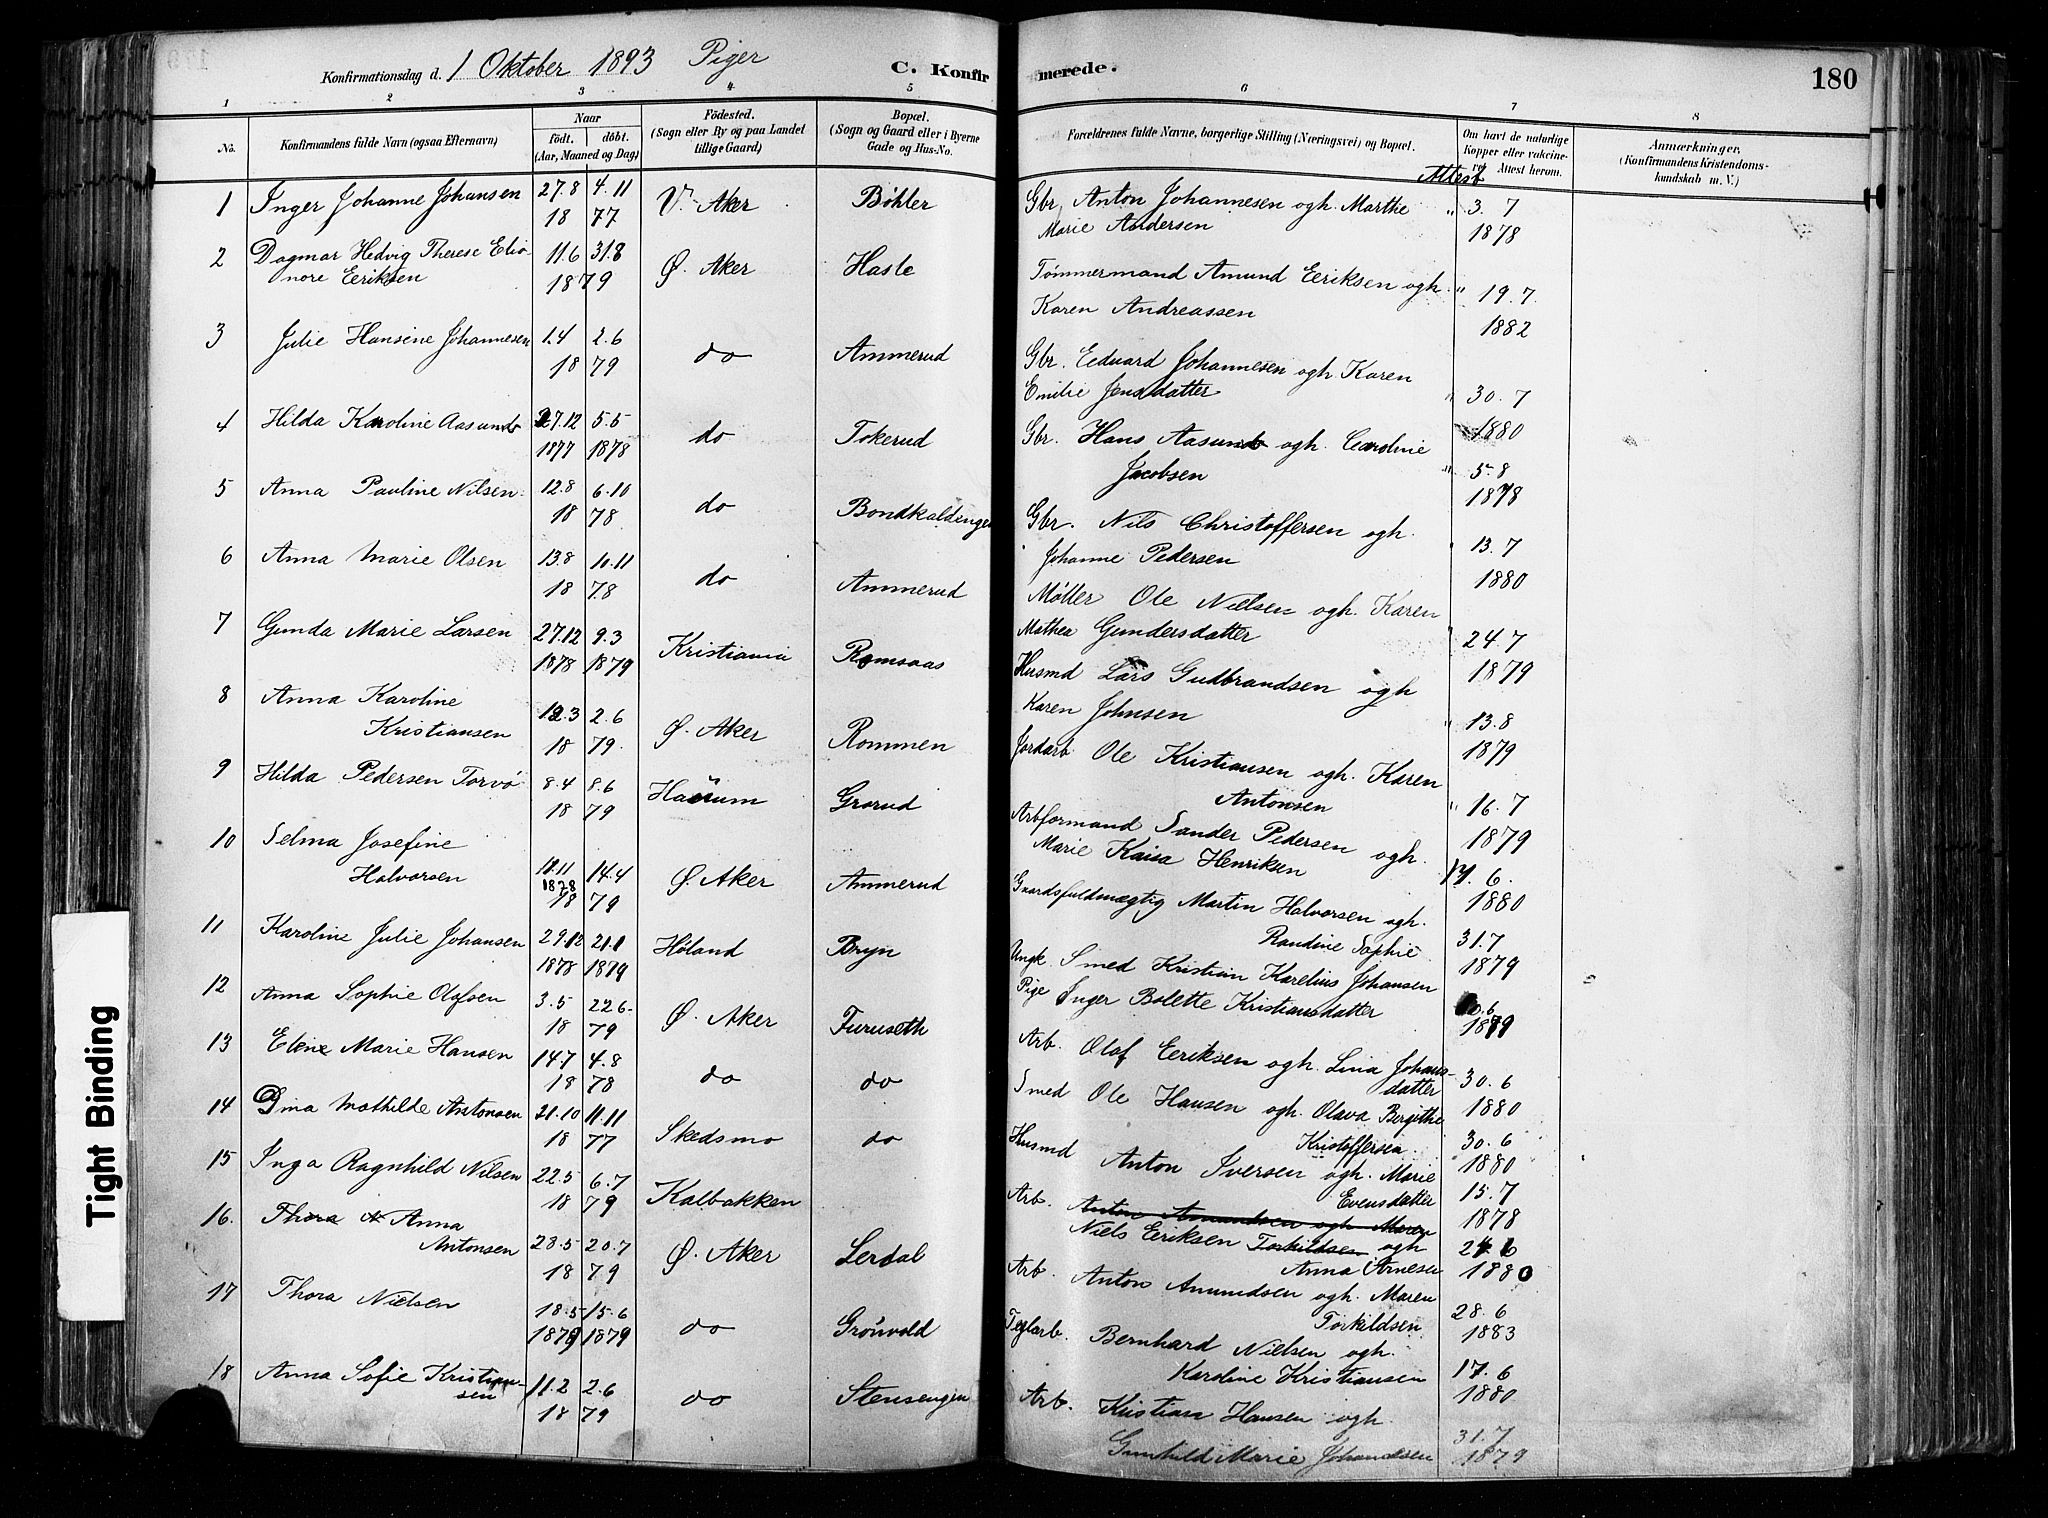 Konfirmationsdag d. 1 Oktober 1893 Piger
C. Konfirmerede.
180
1 2 3 4 5 6 7 8
No.
Konfirmandens fulde Navn (ogsaa Efternavn)
Naar
födt. döbt.
(Aar, Maaned og Dag)
Födested.
(Sogn eller By og paa Landet
tillige Gaard)
Bopæl.
(Sogn og Gaard eller i Byerne
Gade og Hus-No.
Forældrenes fulde Navne, borgerlige Stilling (Næringsvei) og Bopæl.
Om havt de naturlige
Kopper eller vakcine-
ret Attest herom.
Attest
Anmærkninger,
(Konfirmandens Kristendoms-
kundskab m. V.)
1 Inger Johanne Johansen 27.8 4.11 V. Aker Bøhler Gbr. Anton Johannesen ogh. Marthe " 3. 7
18 77 Marie Andersen 1878
2 Dagmar Hedvig Therese Elio 11.6 31.8 Ø. Aker Hasle Tømmermand Amund Eeriksen ogh. " 19.7.
nore Eeriksen 18 79 Karen Andreassen 1882
3 Julie Hansine Johannesen 1.4 2.6 do Ammerud Gbr. Eeduard Johannesen ogh. Karen
18 79 Emilie Jensdatter " 30. 7
1880
4 Hilda Karoline Aasund 27.12 5.5 do Tokerud Gbr. Hans Aasund ogh. Caroline
1877 1878 Jacobsen " 5.8
1878
5 Anna Pauline Nilsen 12.8 6.10 do Bondkaldingen Gbr. Nils Christoffersen ogh.
18 78. Johanne Pedersen " 13.7
1880
6 Anna Marie Olsen 13.8 10.11 do Ammerud Møller Ole Nielsen ogh. Karen
18 78 Mathea Gundersdatter " 24.7
1879
7 Gunda Marie Larsen 27.12 9.3 Kristiania Romsaas Husmd Lars Gudbrandsen ogh
1878 1879 Karen Johnsen " 13.8
1879
8 Anna Karoline
Kristiansen 12.3 2.6 Ø. Aker Rommen Jordarb. Ole Kristiansen ogh. Karen
18 79. Antonsen " 16.7
1879
9 Hilda Pedersen Torvø 8.4 8.6 Grorud Arbformand Sander Pedersen ogh.
18 79 Marie Kaisa Henriksen 17. 6.
1880
10 Selma Josefine
Halvorsen 11.11 14.4 Ø. Aker Ammerud Gaardsfuldmægtig Martin Halvorsen ogh.
1878 79 Randine Sophie 31.7
78
1879
11 Karoline Julie Johansen 29.12 21.1 Høland Bryn Ungk. Smed Kristian Karelius Johansen
1878 1879 Pige Inger Bolette Kristiansdatter .6
1879
12 Anna Sophie Olafsen 3.5 22.6 Ø. Aker Furuseth Arb. Olaf Eeriksen ogh. Lina Johans-
18 79 datter 30.6
1880
13 Eline Marie Hansen 14.7 4.8 do do Smed Ole Hansen ogh. Olava Bergithe
18 78 Kristoffersen. 30.6
1880
14 Dina Mathilde Antonsen 21.10 11.11 Skedsmo do Husmd Anton Iversen ogh. Marie
18 77 Evensdatter 15.7
1878
15 Inga Ragnhild Nilsen 22.5 6.7 Kalbakken Arb. Anton Amundsen ogh. Maren
18 79 Niels Eeriksen Torkildsen ogh
Anna Arnesen 24.6
1880
16. Thora N Anna
Antonsen 28.5 20.7 Ø. Aker Lerdal Arb. Anton Amundsen ogh. Maren
18 79 Torkildsen 28.6
1883
17 Thora Nielsen 18.5 15.6 do Grönvold Teglarb. Bernhard Nielsen ogh.
1879 1879 Karoline Kristiansen 17.6
1880
18 Anna Sofie Kristian-
sen 11.2 2.6 do Stensengen Arb. Kristian Hansen ogh.
18 79 Gunhild Marie Johandsen 31.7
1879
Tight Binding